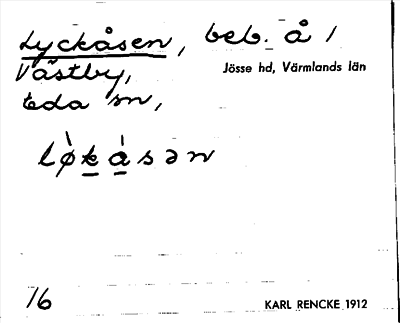 Lyckåsen, beb. å 1
Västby,
Jösse hd, Värmlands län
Eda sn,
lø̀kåsən
16
KARL RENCKE 1912